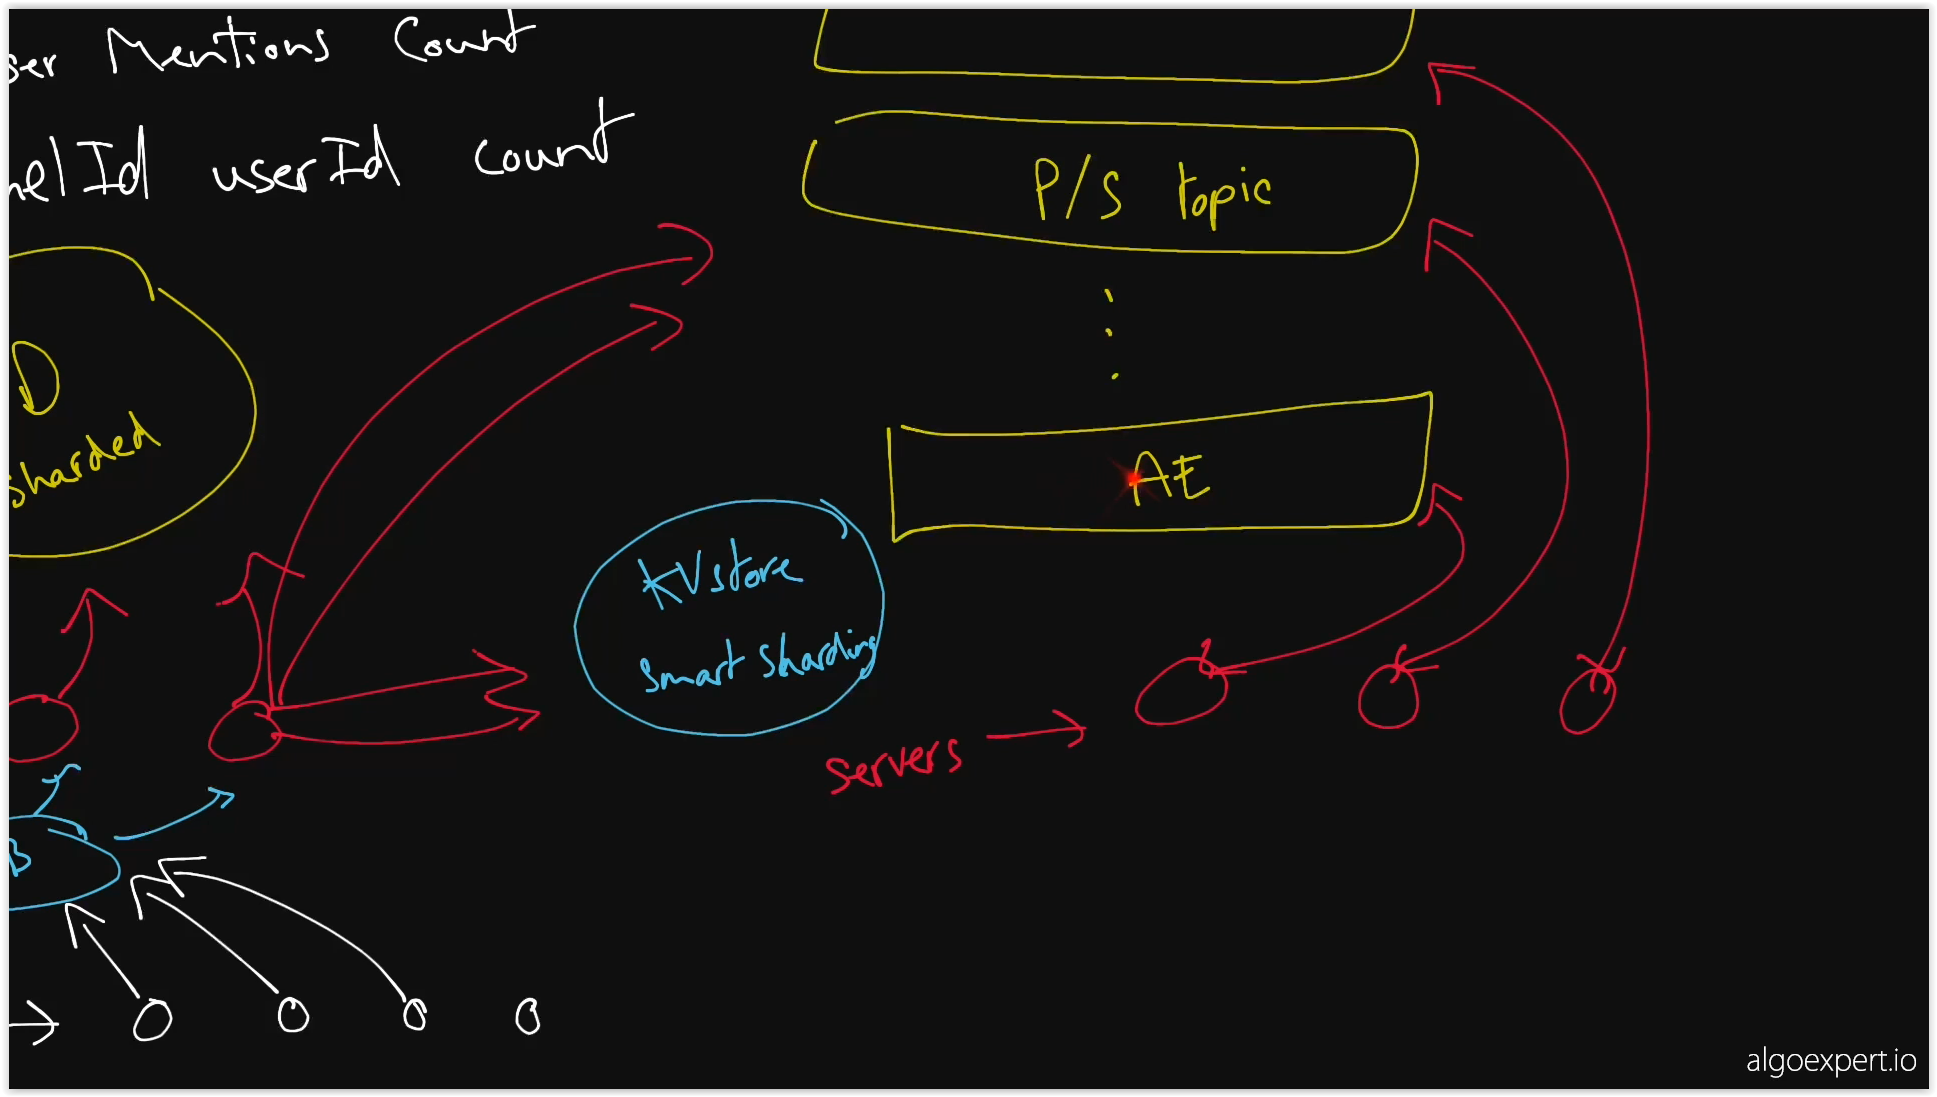 ser Mentions Count
nelId userId count
P/S topic
D
sharded
AE
KVstore
Smart Sharding
Servers
B
algoexpert.io